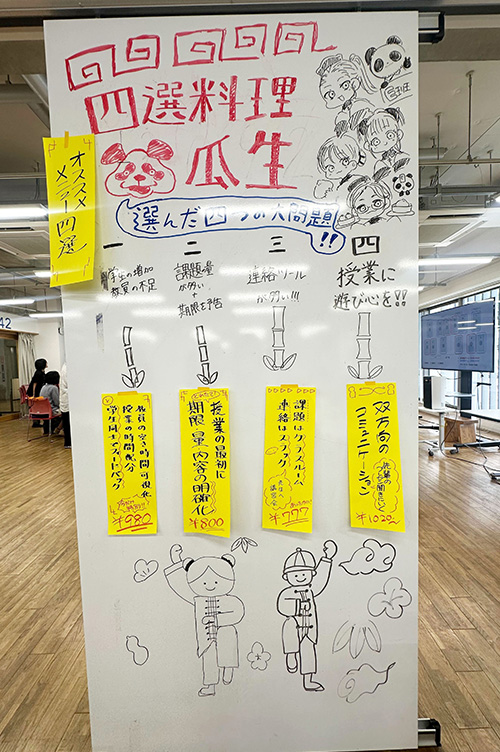 四選料理
瓜生
オススメ
メニュー四選
選んだ四つの大問題!!
一
学生の増加
教員の不足
二
課題の量
が多い
期限を守る
三
連絡ツール
が多い!!!
四
授業に
遊び心を!!
教員の空き時間可視化
授業の時間配分
学生同士でフィードバック
¥980
授業の最初に
期限 量 内容の明確化
¥800
課題はクラスルーム
連絡はスラック
¥777
双方向の
コミュニケーション
¥1020
42